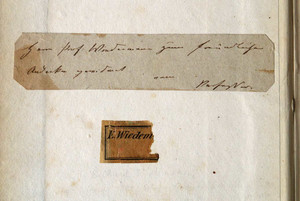 Herrn Prof. Wiedemann zum freundlichen
Andenken gewidmet
vom
Verfasser.
E. Wiedem